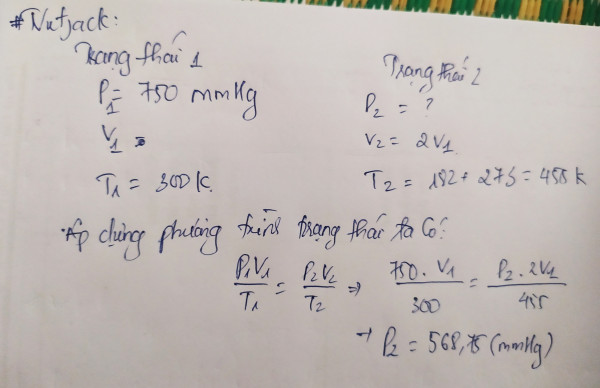 #Nutjack:
Trạng thái 1
P1 = 750 mmHg
V1 =
T1 = 300K.
Trạng thái 2
P2 = ?
V2 = 2V1
T2 = 182 + 273 = 455 K
Áp dụng phương trình trạng thái ta có:
P1V1/T1 = P2V2/T2 => 750 . V1/300 = P2 . 2V1/455
→ P2 = 568,75 (mmHg)